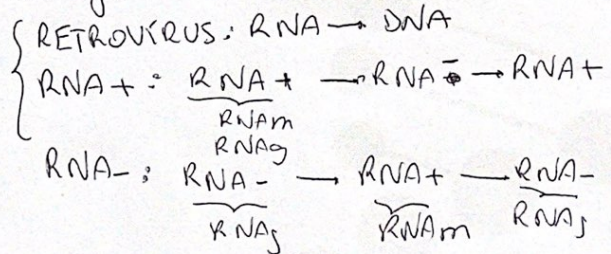 RETROVÍRUS: RNA → DNA
RNA+: RNA+ → RNA- → RNA+
RNAm
RNAg
RNA-: RNA- → RNA+ → RNA-
RNAg RNAm RNAg